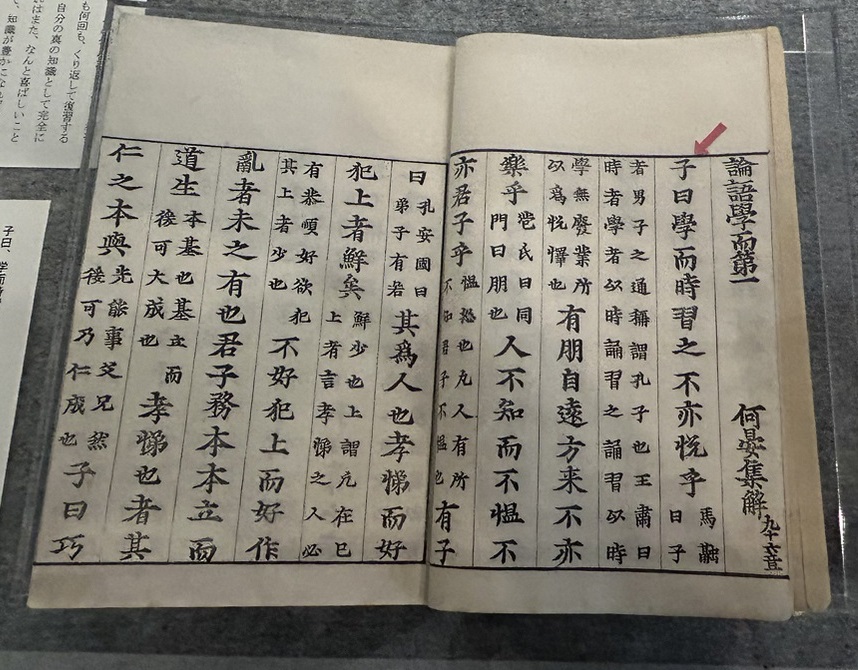 論語學而第一 何晏集解 凡十六章
子曰學而時習之不亦悅乎 馬融曰子
者男子之通稱謂孔子也王肅曰
時者學者以時誦習之誦習以時
學無廢業所以為悅懌也有朋自遠方来不亦
樂乎苞氏曰同門曰朋也人不知而不慍不
亦君子乎慍怒也凡人有所不知君子不慍也有子
曰孔安國曰弟子有若其為人也孝悌而好
犯上者鮮矣鮮少也上謂凡在己上者言孝悌之人必
有恭順好欲犯其上者少也不好犯上而好作
亂者未之有也君子務本本立而
道生本基也基立而後可大成也孝悌也者其
仁之本與先能事父兄然後可乃仁成也子曰巧
も何回も、くり返して復習する
自分の真の知識として完全に
はまた、なんと喜ばしいこと
、知識が豊かになれば
子曰、学而時